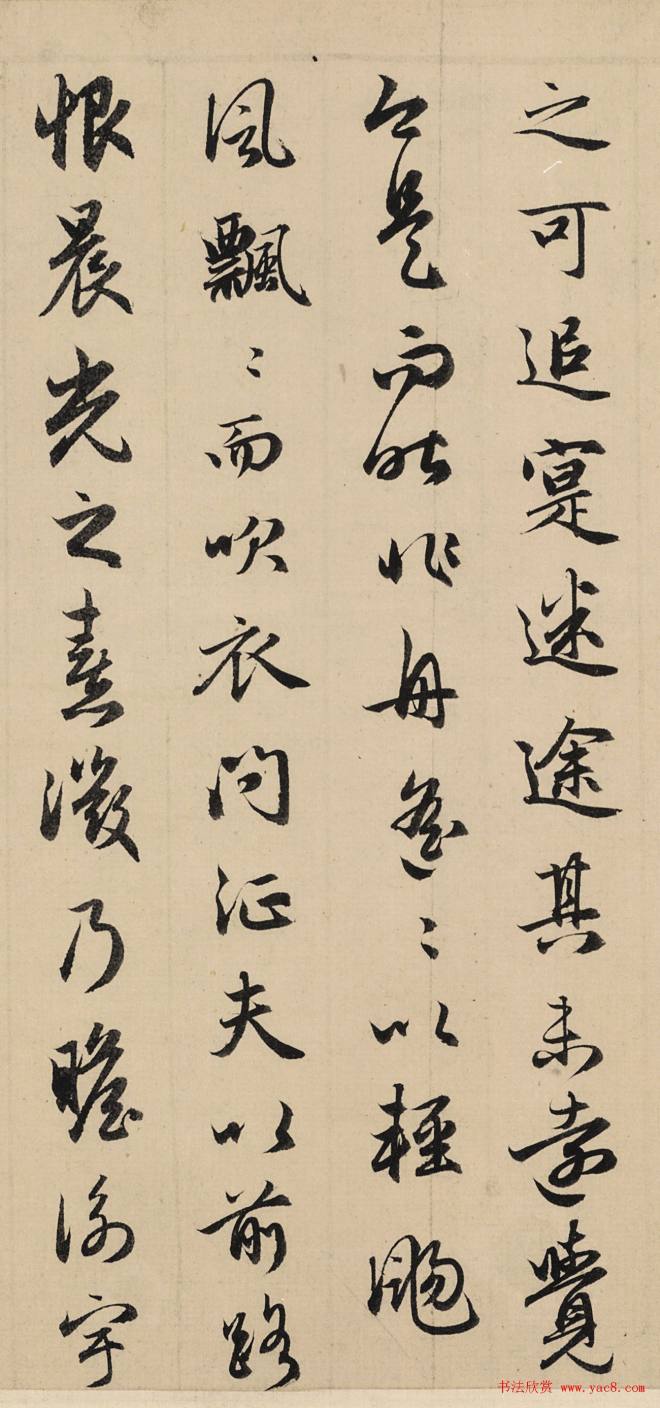 之可追寔迷途其未遠覺
今是而昨非舟遙〻以輕颺
風飄〻而吹衣問征夫以前路
恨晨光之熹微乃瞻衡宇
书法欣赏 www.yac8.com